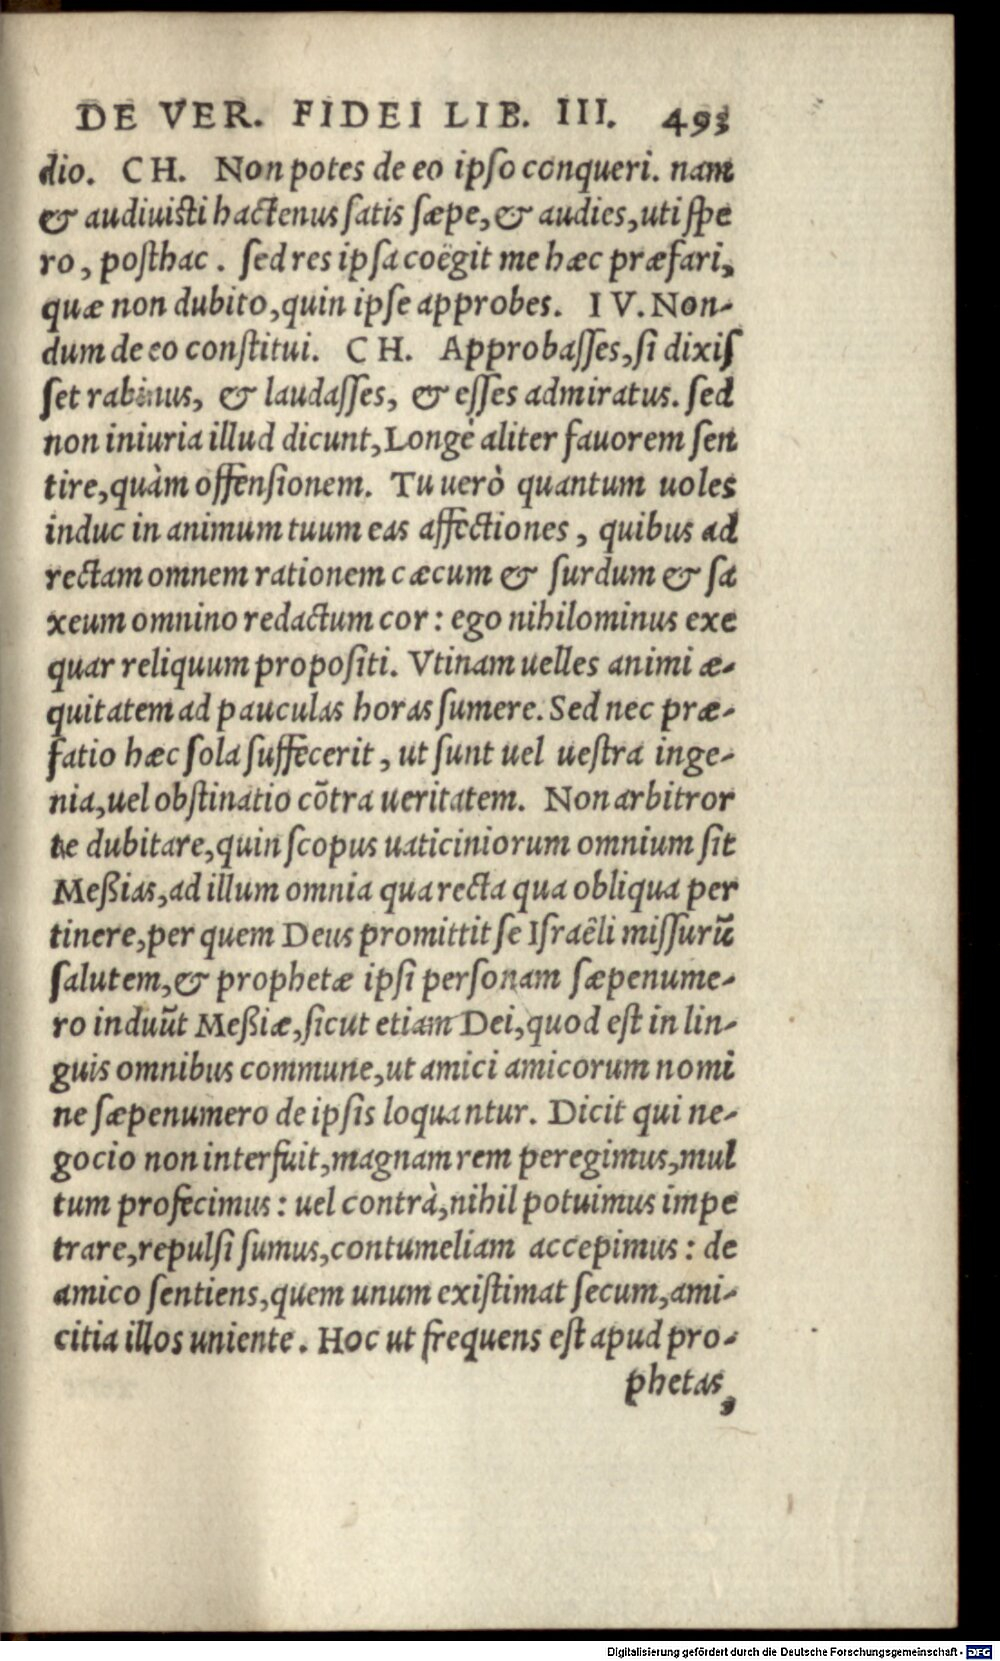 DE VER. FIDEI LIB. III. 493
dio. CH. Non potes de eo ipſo conqueri. nam
& audiuiſti hactenus ſatis ſæpe, & audies, uti ſpe
ro, poſthac. ſed res ipſa coëgit me hæc præfari,
quæ non dubito, quin ipſe approbes. IV. Non-
dum de eo conſtitui. CH. Approbaſſes, ſi dixiſ
ſet rabinus, & laudaſſes, & eſſes admiratus. ſed
non iniuria illud dicunt, Longè aliter fauorem ſen
tire, quàm offenſionem. Tu uerò quantum uoles
induc in animum tuum eas affectiones, quibus ad
rectam omnem rationem cæcum & ſurdum & ſa
xeum omnino redactum cor: ego nihilominus exe
quar reliquum propoſiti. Vtinam uelles animi æ-
quitatem ad pauculas horas ſumere. Sed nec præ-
fatio hæc ſola ſuffecerit, ut ſunt uel ueſtra inge-
nia, uel obſtinatio cõtra ueritatem. Non arbitror
te dubitare, quin ſcopus uaticiniorum omnium ſit
Meßias, ad illum omnia qua recta qua obliqua per
tinere, per quem Deus promittit ſe Iſraêli miſſurũ
ſalutem, & prophetæ ipſi perſonam ſæpenume-
ro induũt Meßiæ, ſicut etiam Dei, quod eſt in lin-
guis omnibus commune, ut amici amicorum nomi
ne ſæpenumero de ipſis loquantur. Dicit qui ne-
gocio non interfuit, magnam rem peregimus, mul
tum profecimus: uel contrà, nihil potuimus impe
trare, repulſi ſumus, contumeliam accepimus: de
amico ſentiens, quem unum exiſtimat ſecum, ami-
citia illos uniente. Hoc ut frequens eſt apud pro-
phetas,
Digitalisierung gefördert durch die Deutsche Forschungsgemeinschaft - DFG